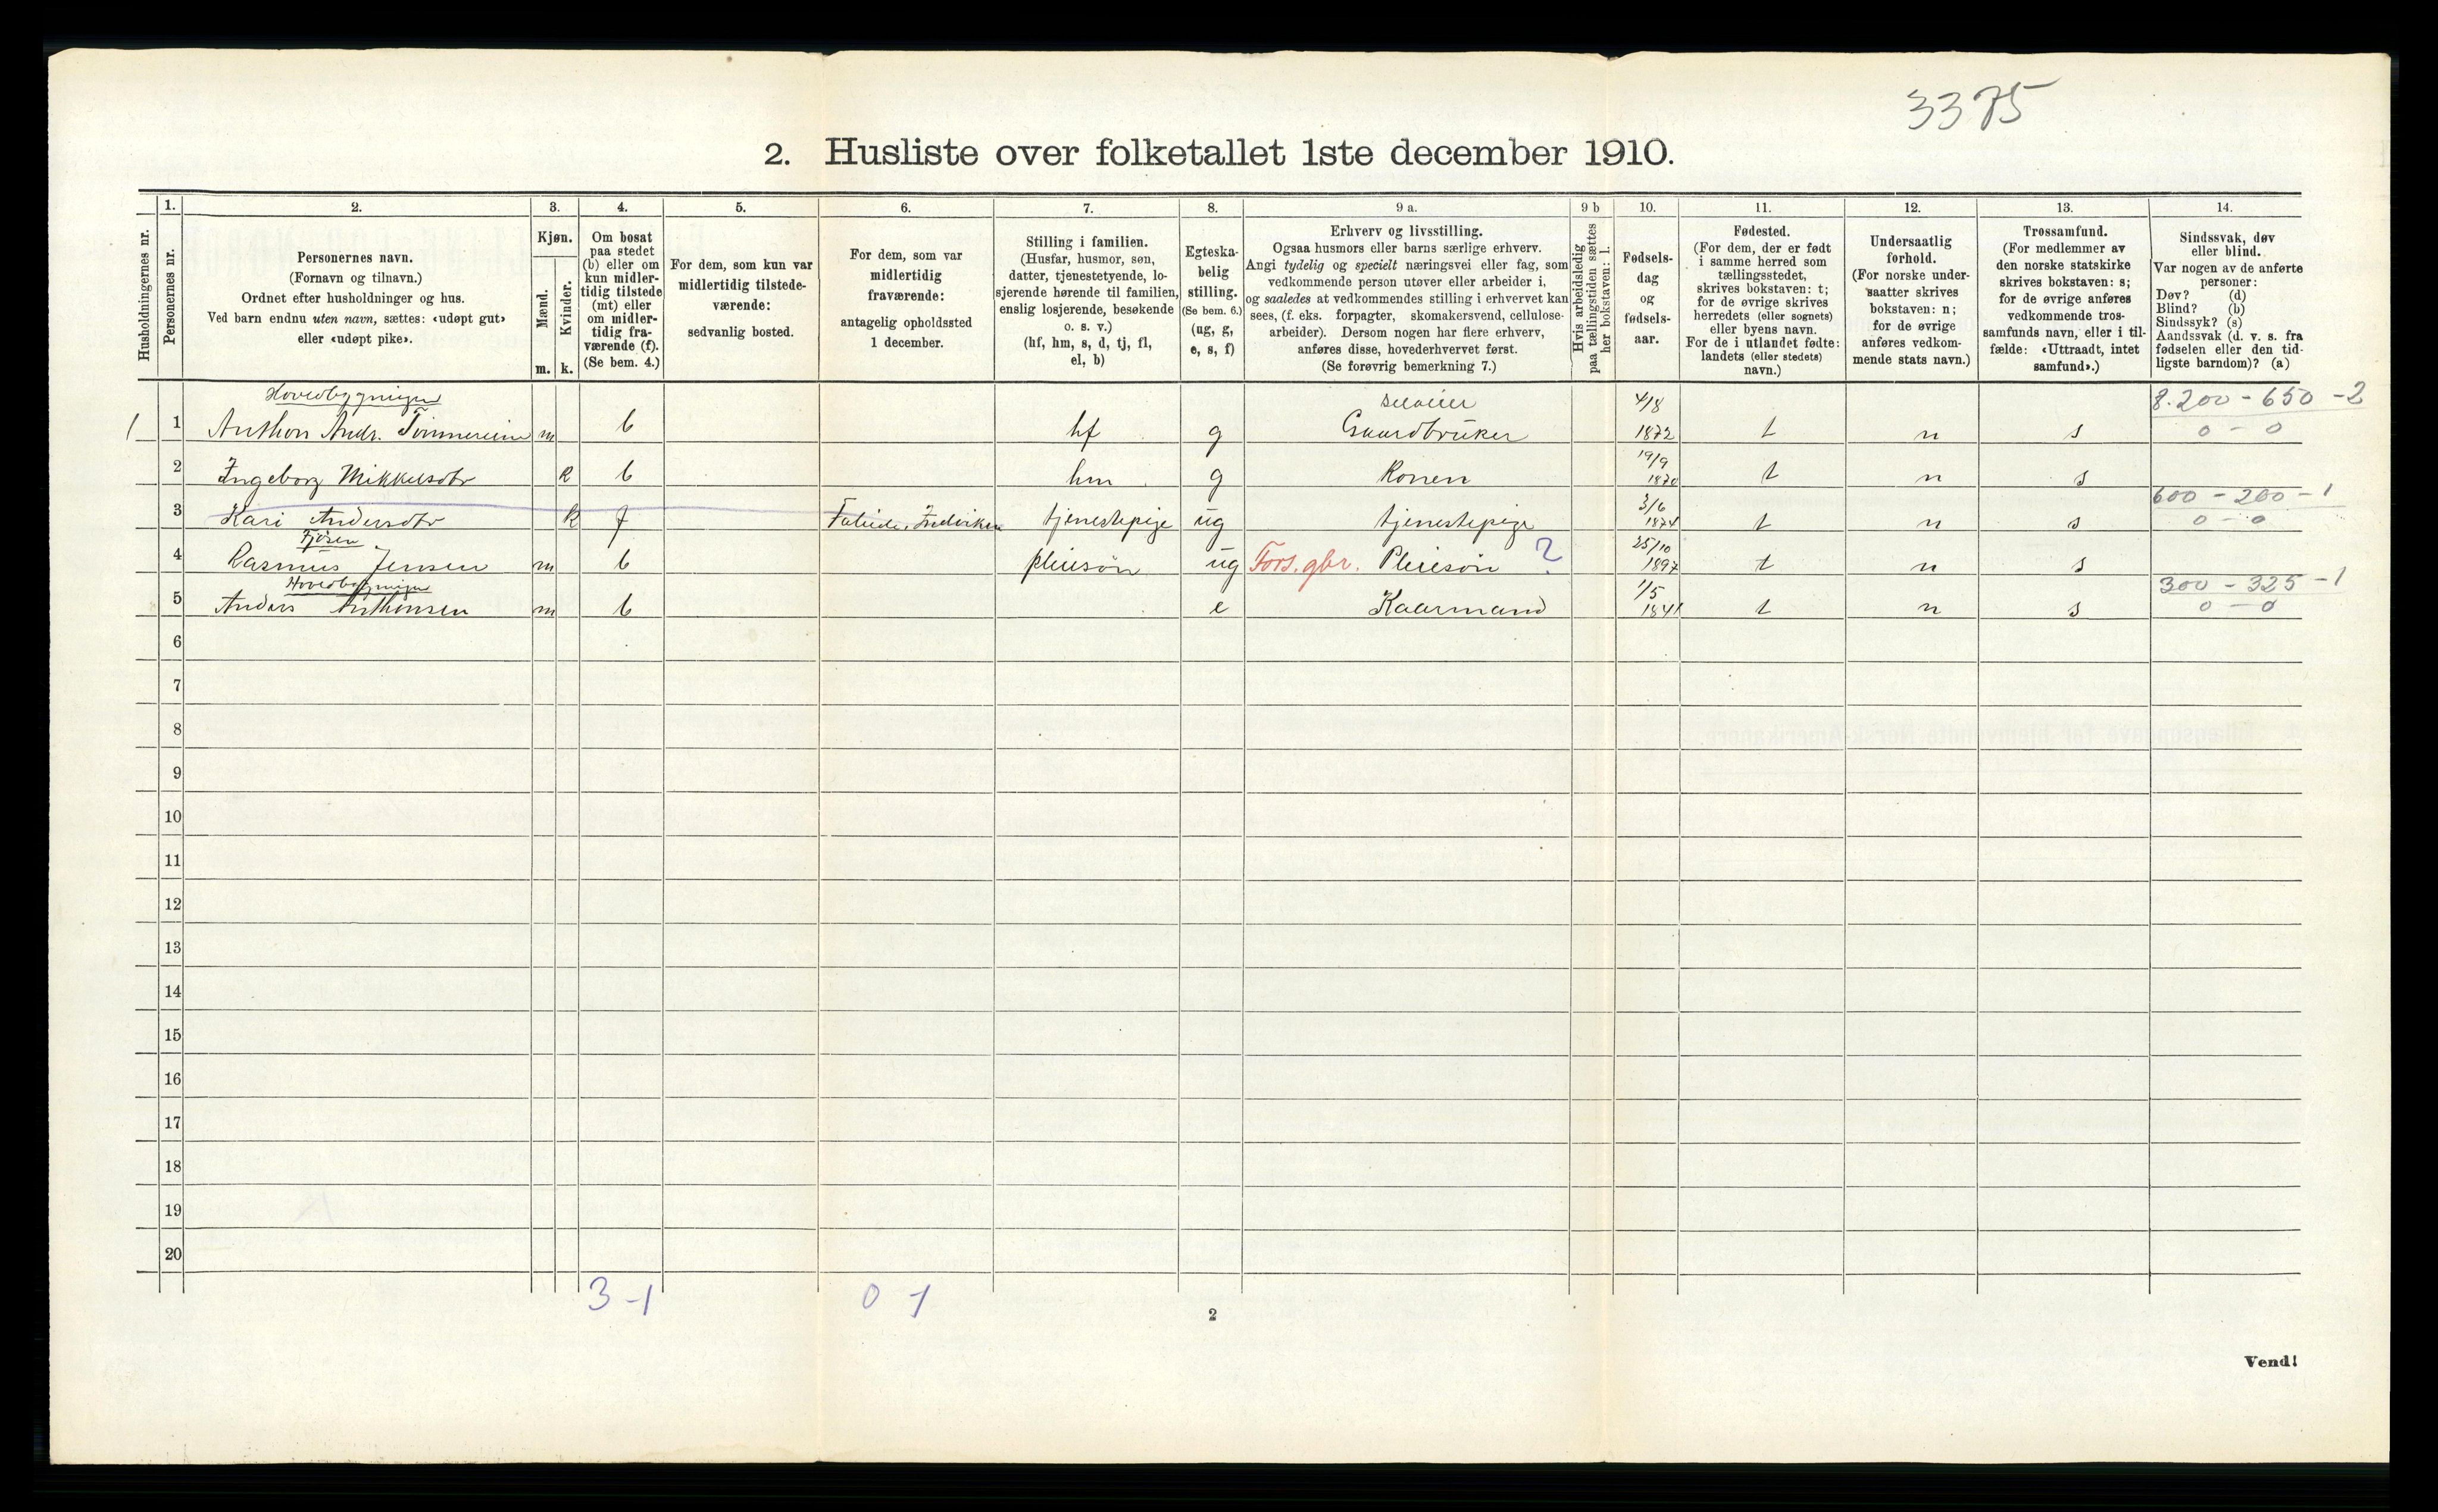 3375
2. Husliste over folketallet 1ste december 1910.
Husholdningernes nr.
1.
Personernes nr.
2.
Personernes navn.
(Fornavn og tilnavn.)
Ordnet efter husholdninger og hus.
Ved barn endnu uten navn, sættes: «udøpt gut»
eller «udøpt pike».
3.
Kjøn.
Mænd.
Kvinder.
m. k.
4.
Om bosat
paa stedet
(b) eller om
kun midler-
tidig tilstede
(mt) eller
om midler-
tidig fra-
værende (f).
(Se bem. 4.)
5.
For dem, som kun var
midlertidig tilstede-
værende:
sedvanlig bosted.
6.
For dem, som var
midlertidig
fraværende:
antagelig opholdssted
1 december.
7.
Stilling i familien.
(Husfar, husmor, søn,
datter, tjenestetyende, lo-
sjerende hørende til familien,
enslig losjerende, besøkende
o. s. v.)
(hf, hm, s, d, tj, fl,
el, b)
8.
Egteska-
belig
stilling.
(Se bem. 6.)
(ug, g,
e, s, f)
9 a.
Erhverv og livsstilling.
Ogsaa husmors eller barns særlige erhverv.
Angi tydelig og specielt næringsvei eller fag, som
vedkommende person utøver eller arbeider i,
og saaledes at vedkommendes stilling i erhvervet kan
sees, (f. eks. forpagter, skomakersvend, cellulose-
arbeider). Dersom nogen har flere erhverv,
anføres disse, hovederhvervet først.
(Se forøvrig bemerkning 7.)
9 b
Hvis arbeidsledig
paa tællingstiden sættes
her bokstaven: l.
10.
Fødsels-
dag
og
fødsels-
aar.
11.
Fødested.
(For dem, der er født
i samme herred som
tællingsstedet,
skrives bokstaven: t;
for de øvrige skrives
herredets (eller sognets)
eller byens navn.
For de i utlandet fødte:
landets (eller stedets)
navn.)
12.
Undersaatlig
forhold.
(For norske under-
saatter skrives
bokstaven: n;
for de øvrige
anføres vedkom-
mende stats navn.)
13.
Trossamfund.
(For medlemmer av
den norske statskirke
skrives bokstaven: s;
for de øvrige anføres
vedkommende tros-
samfunds navn, eller i til-
fælde: «Uttraadt, intet
samfund».)
14.
Sindssvak, døv
eller blind.
Var nogen av de anførte
personer:
Døv? (d)
Blind? (b)
Sindssyk? (s)
Aandssvak (d. v. s. fra
fødselen eller den tid-
ligste barndom)? (a)
Hovedbygningen selveier 4/8 8.200 - 650 - 2
1 1 Anthon Andr. Tømmereim m b hf g Gaardbruker 1872 t n s 0 - 0
2 Ingeborg Mikkelsdtr k b hm g Konen 19/9 1870 t n s
600 - 200 - 1
3 Kari Andersdtr k f tjenestepige ug tjenestepige 3/6 1874 t n s 0 - 0
Fjøsen
4 Rasmus Jensen m b pleiesøn ug Fors. gbr. Pleiesøn ? 25/10 1897 t n s
Hovedbygningen 300 - 325 - 1
5 Anders Anthonsen m b e Kaarmand 1/5 1841 t n s 0 - 0
6
7
8
9
10
11
12
13
14
15
16
17
18
19
20
3 - 1 0 1
2
Vend!